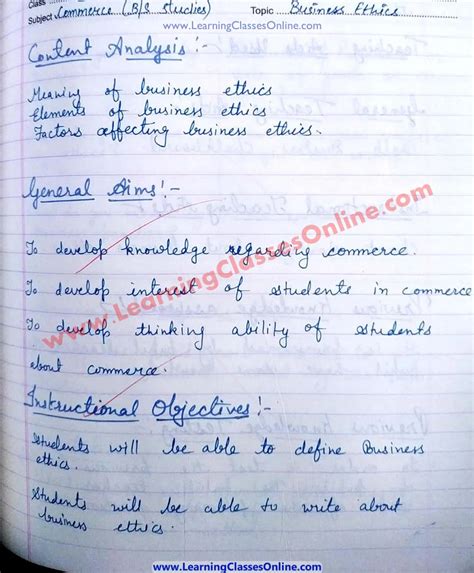 www.LearningClassesOnline.com
Class
Subject Commerce (B/S studies) Topic Business Ethics
Content Analysis :-
Meaning of business ethics
Elements of business ethics
Factors affecting business ethics.
General Aims :-
To develop knowledge regarding commerce.
To develop interest of students in commerce
To develop thinking ability of students
about commerce.
www.LearningClassesOnline.com
Instructional Objectives :-
Students will be able to define Business
ethics.
Students will be able to write about
business ethics.
www.LearningClassesOnline.com